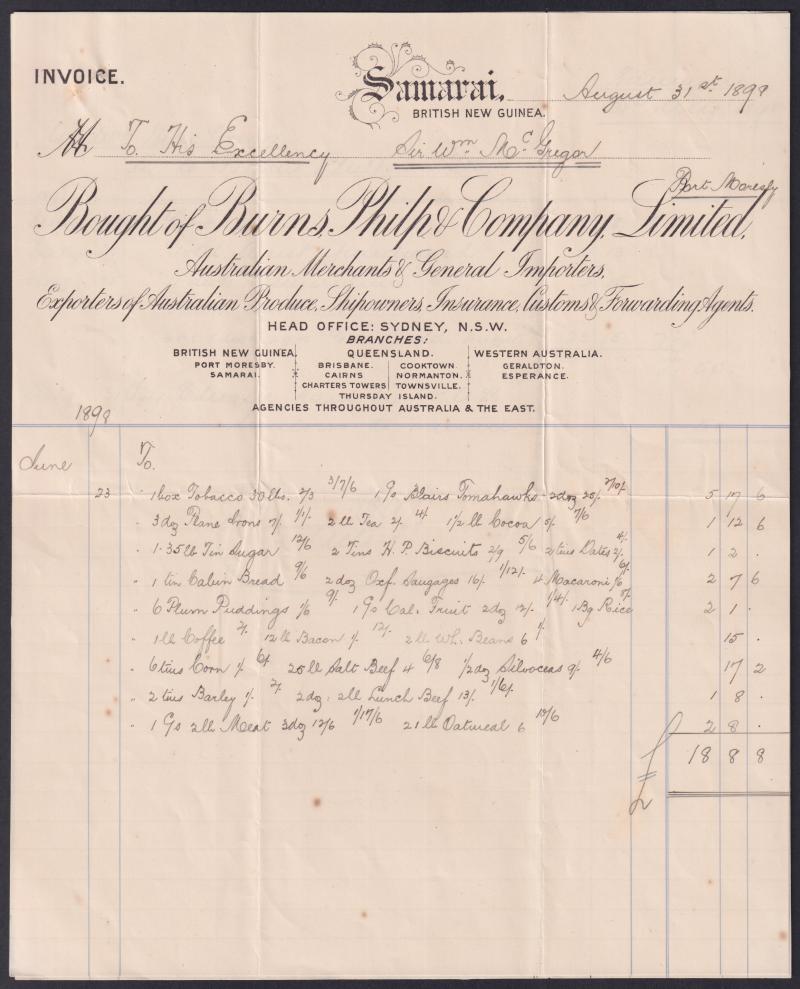 INVOICE.
Samarai,
BRITISH NEW GUINEA.
August 31st 1898
M To His Excellency Sir Wm McGregor
Port Moresby
Bought of Burns, Philp & Company, Limited,
Australian Merchants & General Importers,
Exporters of Australian Produce, Shipowners, Insurance, Customs & Forwarding Agents.
HEAD OFFICE: SYDNEY, N.S.W.
BRANCHES:
BRITISH NEW GUINEA. QUEENSLAND. WESTERN AUSTRALIA.
PORT MORESBY. BRISBANE. COOKTOWN. GERALDTON.
SAMARAI. CAIRNS NORMANTON. ESPERANCE.
CHARTERS TOWERS TOWNSVILLE.
THURSDAY ISLAND.
AGENCIES THROUGHOUT AUSTRALIA & THE EAST.
1898
June To
23 " 1 box Tobacco 30 lbs. 2/3 3/7/6 1 c/s Blairs Tomahawks 2 doz 25/- 2/10/- 5 17 6
" 3 doz Plane Irons 7/- 1/1/- 2 lb Tea 2/- 4/- 1 1/2 lb Cocoa 5/- 7/6 1 12 6
" 1.35 lb Tin Sugar 12/6 2 Tins H.P. Biscuits 2/9 5/6 2 tins Dates 2/- 4/- 1 2 .
" 1 tin Cabin Bread 9/6 2 doz Oxf. Sausages 16/- 1/12/- 4 Macaroni 1/6 6/- 2 7 6
" 6 Plum Puddings 1/6 9/- 1 c/s Cal. Fruit 2 doz 12/- 1/4/- 1 Bg Rice 8/- 2 1 .
" 1 lb Coffee 2/- 12 lb Bacon 1/- 12/- 2 lb Wh. Beans 6 1/- 15 .
" 6 tins Corn 1/- 6/- 20 lb Salt Beef 4 6/8 1/2 doz 9/- 4/6 17 2
" 2 tins Barley 1/- 2/- 2 doz 2 lb Lunch Beef 13/- 1/6/- 1 8 .
" 1 c/s 2 lb Meat 3 doz 12/6 1/17/6 21 lb Oatmeal 6 10/6 2 8 .
£ 18 8 8